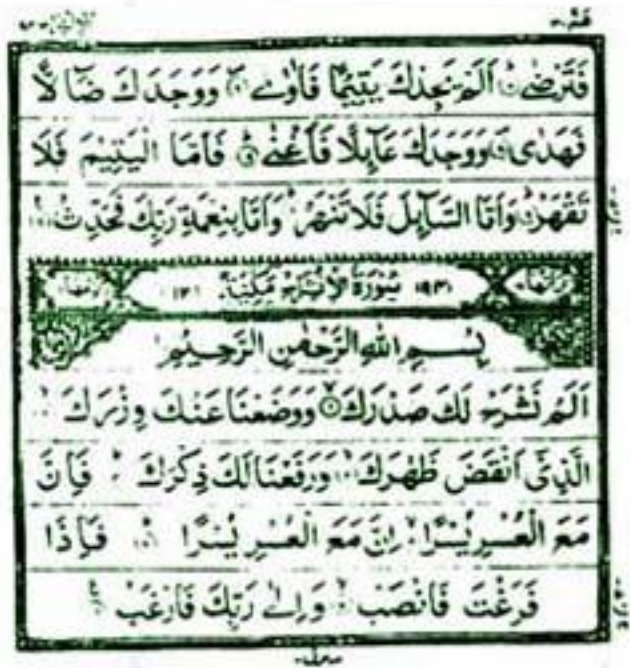 عم ٣٠
فَتَرْضٰى ۝ اَلَمْ يَجِدْكَ يَتِيْمًا فَاٰوٰى ۝ وَوَجَدَكَ ضَآلًّا
فَهَدٰى ۝ وَوَجَدَكَ عَآئِلًا فَاَغْنٰى ۝ فَاَمَّا الْيَتِيْمَ فَلَا
تَقْهَرْ ۝ وَاَمَّا السَّآئِلَ فَلَا تَنْهَرْ ۝ وَاَمَّا بِنِعْمَةِ رَبِّكَ فَحَدِّثْ ۝
(٩٤) سُوْرَةُ الْاِنْشِرَاحِ مَكِّيَّةٌ (١٢)
بِسْمِ اللّٰهِ الرَّحْمٰنِ الرَّحِيْمِ
اَلَمْ نَشْرَحْ لَكَ صَدْرَكَ ۝ وَوَضَعْنَا عَنْكَ وِزْرَكَ ۝
الَّذِيْٓ اَنْقَضَ ظَهْرَكَ ۝ وَرَفَعْنَا لَكَ ذِكْرَكَ ۝ فَاِنَّ
مَعَ الْعُسْرِ يُسْرًا ۝ اِنَّ مَعَ الْعُسْرِ يُسْرًا ۝ فَاِذَا
فَرَغْتَ فَانْصَبْ ۝ وَاِلٰى رَبِّكَ فَارْغَبْ ۝